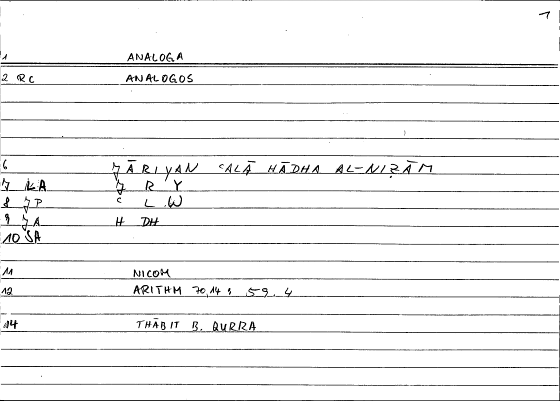 1
1 ANALOGA
2 RC ANALOGOS
6 ǦĀRIYAN ʿALĀ HĀDHA AL-NIẒĀM
8 ʿ L W
9 H DH
10 SA
11 NICOM
12 ARITHM 70,14 : 59.4
14 THĀBIT B. QURRA